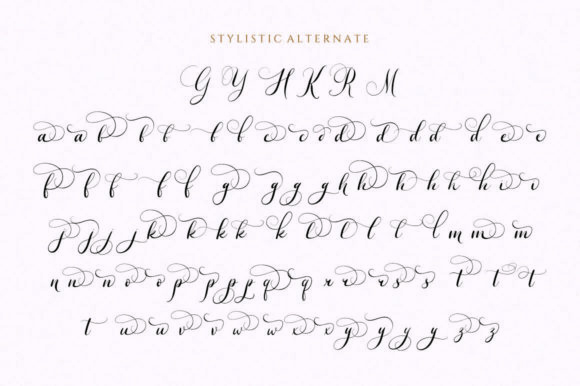 STYLISTIC ALTERNATE
G Y H K R M
a a b b b b b c c d d d d d e e
f f f f f g g g g h h h h h i i
j j j j k k k k k l l l l l m m m
n n n o o p p p p q q r r s s t t t
t u u v v w w x x y y y y z z